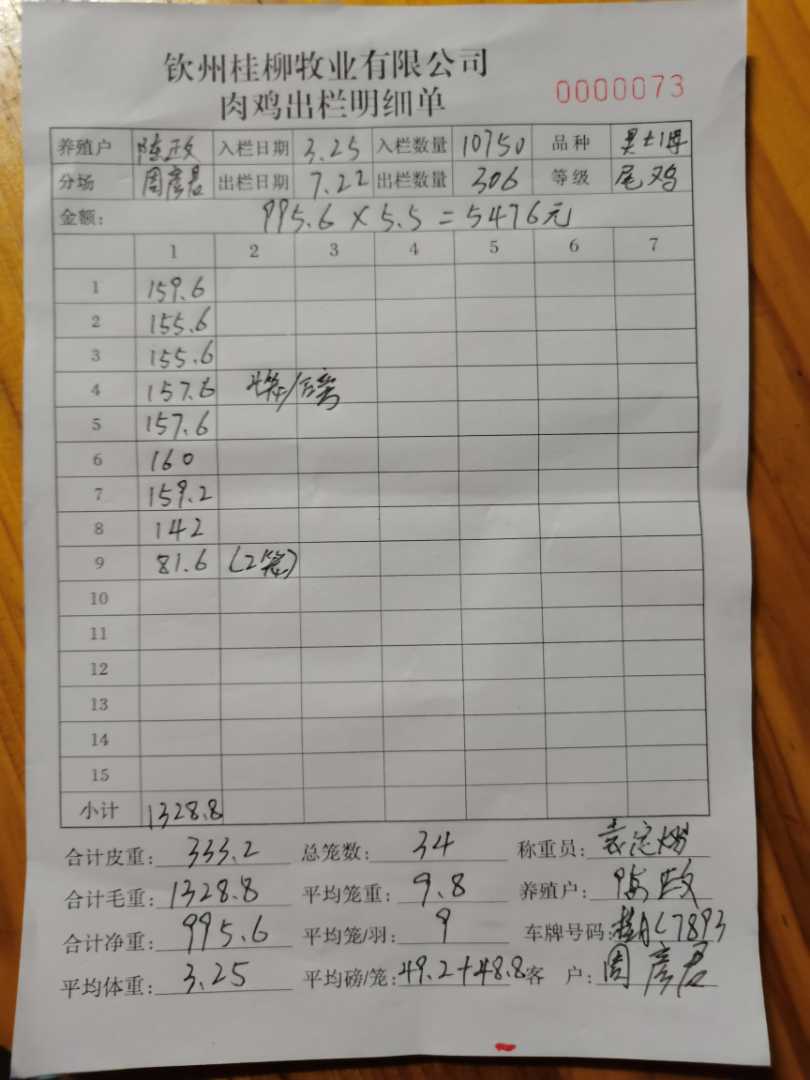 钦州桂柳牧业有限公司
肉鸡出栏明细单
0000073
养殖户 陈政 入栏日期 3.25 入栏数量 10750 品种
分场 周彦君 出栏日期 7.22 出栏数量 306 等级 尾鸡
金额: 995.6 × 5.5 = 5476元
1 2 3 4 5 6 7
1 159.6
2 155.6
3 155.6
4 157.6
5 157.6
6 160
7 159.2
8 142
9 81.6 (2笼)
10
11
12
13
14
15
小计 1328.8
合计皮重: 333.2 总笼数: 34 称重员:
合计毛重: 1328.8 平均笼重: 9.8 养殖户: 陈政
合计净重: 995.6 平均笼/羽: 9 车牌号码: C7893
平均体重: 3.25 平均磅/笼: 49.2+48.8 客 户: 周彦君